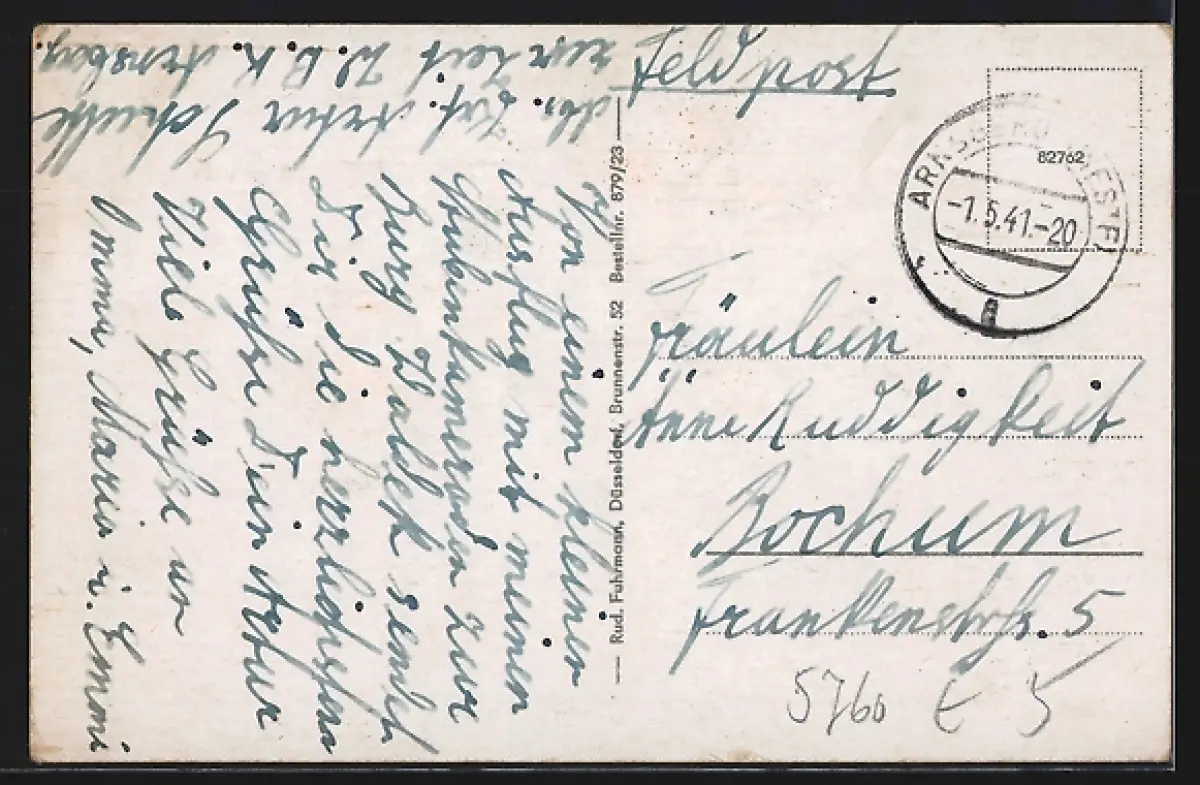 Feldpost
82762
ARNSBERG (WESTF)
-1.5.41.-20
a
Fräulein
Änne Ruddigkeit
Bochum
Frankenstr. 5
5760 E 5
Rud. Fuhrmann, Düsseldorf, Brunnenstr. 52 Bestellnr. 879/23
Von einem kleinen
Ausflug mit meinen
Stubenkameraden zur
Burg Waldek sendet
Dir die herzligsten
Grüße Dein Artur
Viele Grüße an
Omma, Maria u. Emmi
Abs. Artur
zur Zeit W.B.K. Arnsberg.